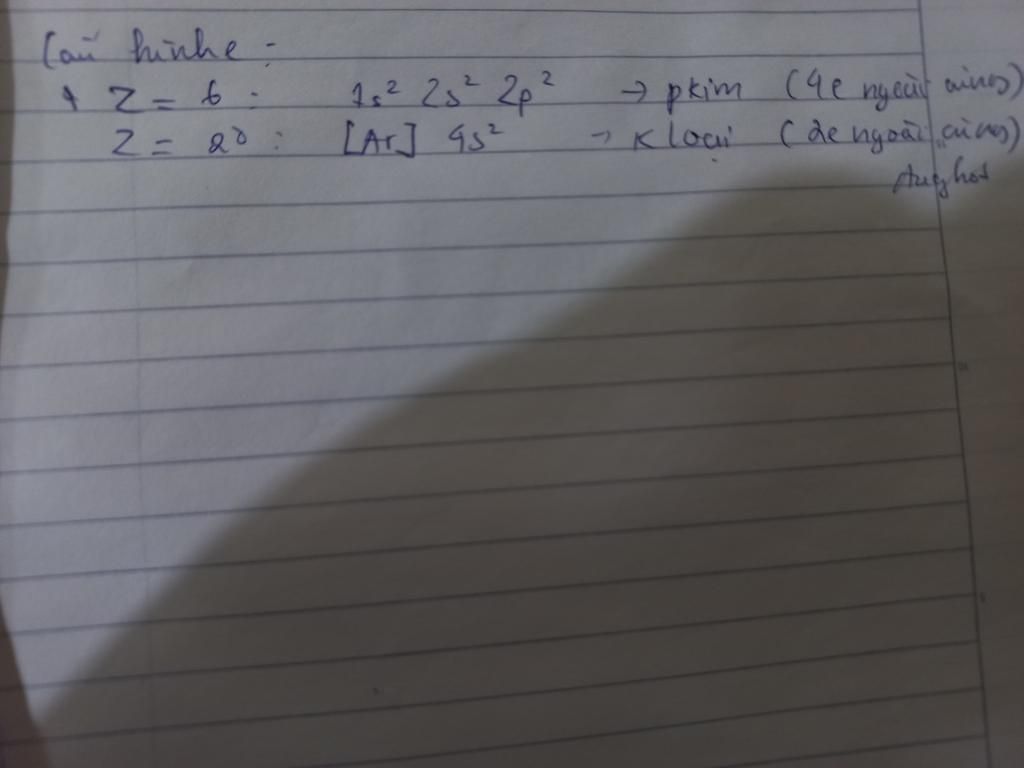 Cấu hình e :
+ Z = 6 : 1s² 2s² 2p² → pkim (4e ngoài cùng)
Z = 20 : [Ar] 4s² → K loại (2e ngoài cùng)